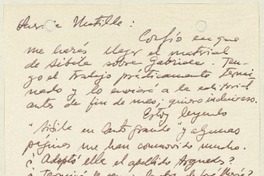 Querida Matilde:
Confío en que
me harás llegar el material
de Sibila sobre Gabriela. Ten-
go el trabajo prácticamente termi-
nado y lo enviaré a la editorial
antes de fin de mes; quiero incluirlo.
Estoy leyendo
"Sibila en Canto Grande" y algunas
páginas me han conmovido mucho.
¿Adoptó ella el apellido Arguedas?